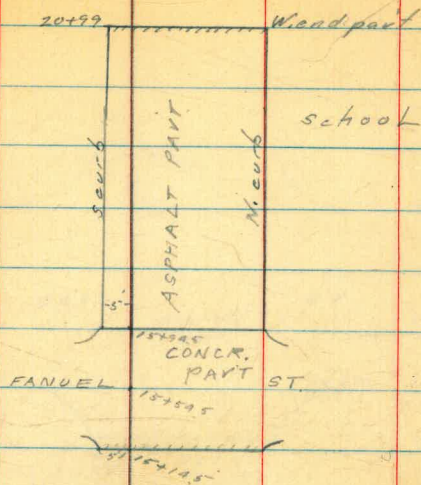 20+99 W. end pav't
school
S curb
ASPHALT PAVT
N. curb
5'
15+94.5
CONCR.
PAV'T
FANUEL ST.
15+54.5
15+14.5